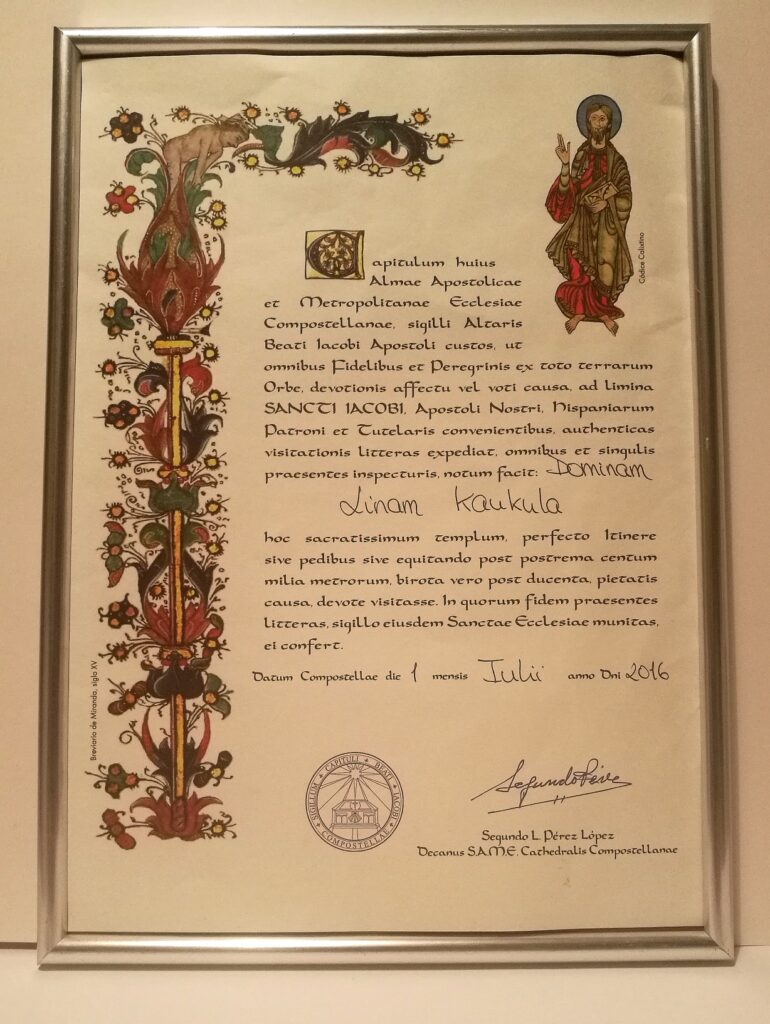 Capitulum huius
Almae Apostolicae
et Metropolitanae Ecclesiae
Compostellanae, sigilli Altaris
Beati Iacobi Apostoli custos, ut
omnibus Fidelibus et Peregrinis ex toto terrarum
Orbe, devotionis affectu vel voti causa, ad limina
SANCTI IACOBI, Apostoli Nostri, Hispaniarum
Patroni et Tutelaris convenientibus, authenticas
visitationis litteras expediat, omnibus et singulis
praesentes inspecturis, notum facit: Dominam
Linam Kaukula
hoc sacratissimum templum, perfecto Itinere
sive pedibus sive equitando post postrema centum
milia metrorum, birota vero post ducenta, pietatis
causa, devote visitasse. In quorum fidem praesentes
litteras, sigillo eiusdem Sanctae Ecclesiae munitas,
ei confert.
Datum Compostellae die 1 mensis Iulii anno Dni 2016
SIGILLUM CAPITULI BEATI IACOBI COMPOSTELLAE
Segundo L. Pérez López
Decanus S.A.M.E. Cathedralis Compostellanae
Códice Calixtino
Breviario de Miranda, siglo XV